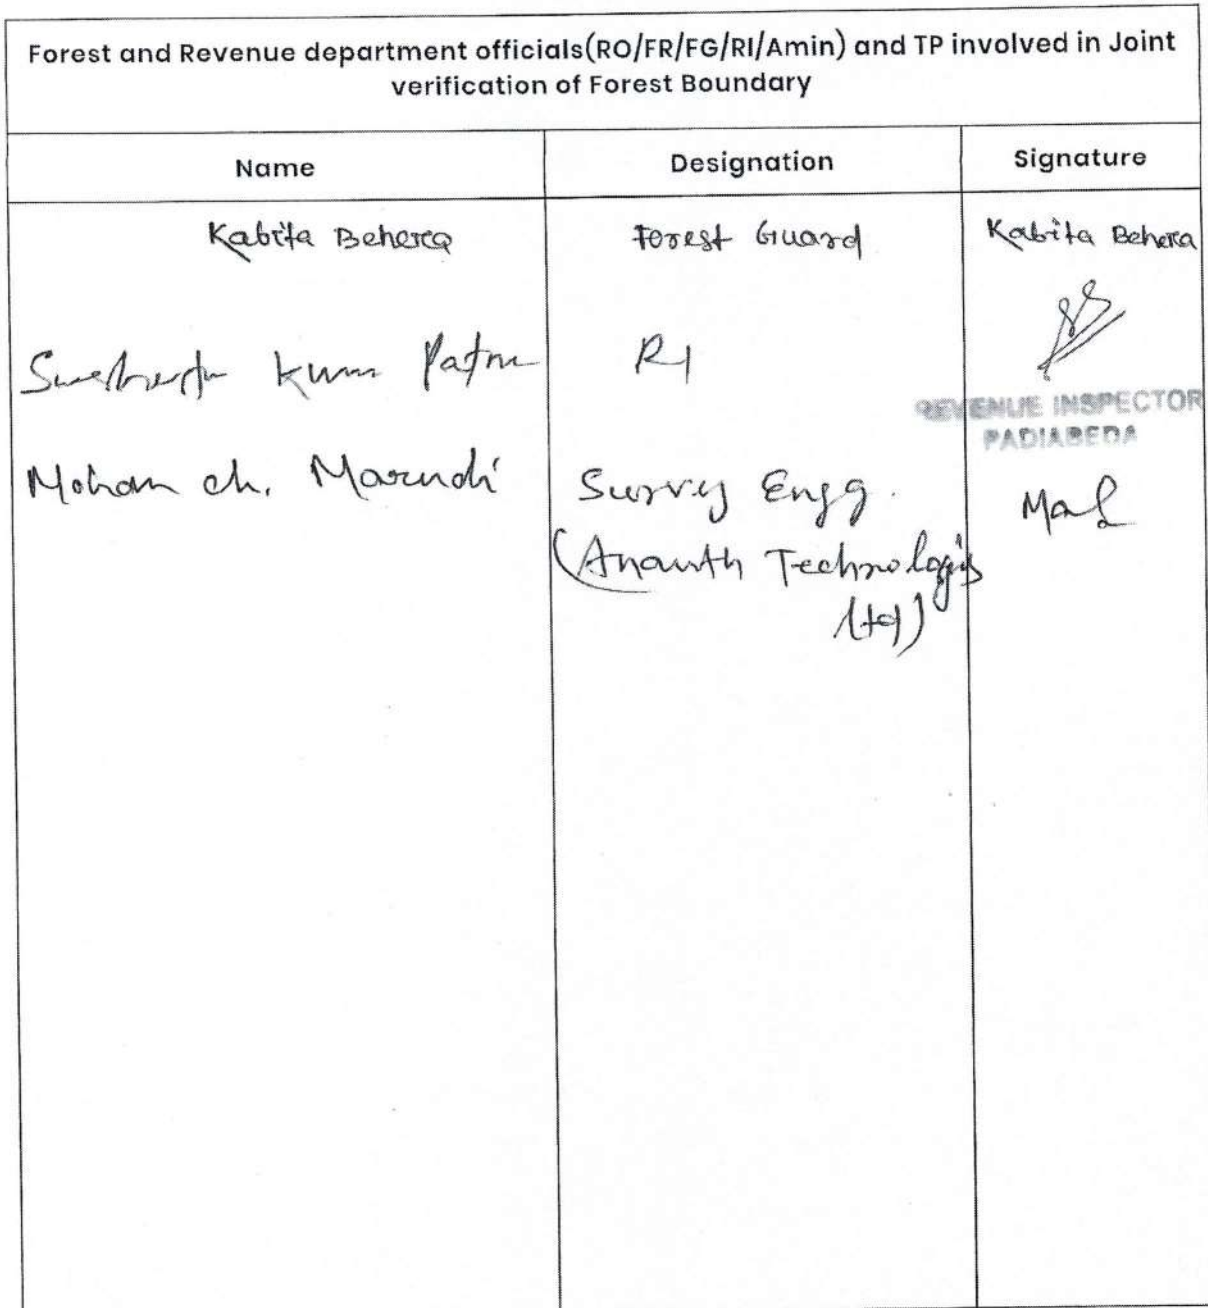 Forest and Revenue department officials(RO/FR/FG/RI/Amin) and TP involved in Joint
verification of Forest Boundary
Name Designation Signature
Kabita Behera Forest Guard Kabita Behera
Kum RI
REVENUE INSPECTOR
PADIABEDA
Mohan ch. Marndi Survey Engg.
(Ananth Technologis
Ltd)